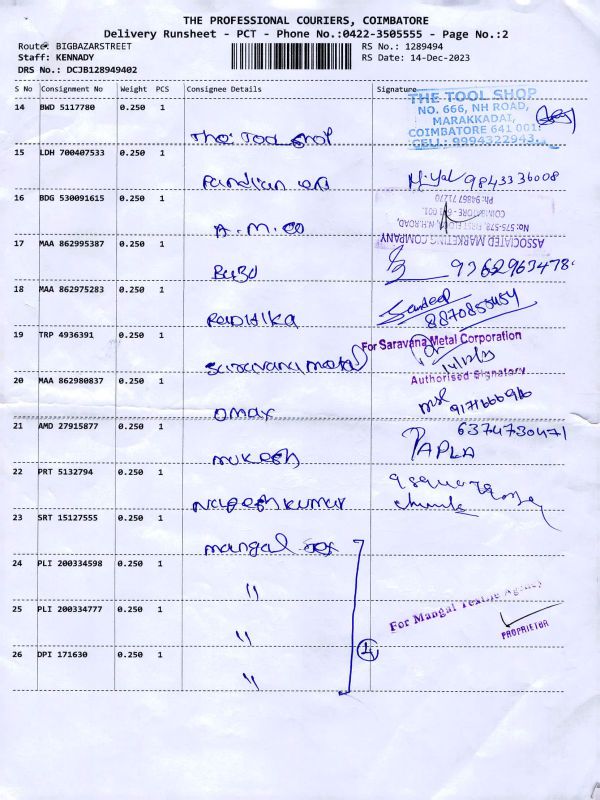 THE PROFESSIONAL COURIERS, COIMBATORE
Delivery Runsheet - PCT - Phone No.:0422-3505555 - Page No.:2
Route: BIGBAZARSTREET RS No.: 1289494
Staff: KENNADY RS Date: 14-Dec-2023
DRS No.: DCJB128949402
S No Consignment No Weight PCS Consignee Details Signature
14 BWD 5117780 0.250 1
THE TOOL SHOP
NO. 666, NH ROAD,
MARAKKADAI,
COIMBATORE 641 001.
CELL: 9994322943
The Tool Shop
15 LDH 700407533 0.250 1
Pandian 9843336008
16 BDG 530091615 0.250 1
ASSOCIATED MARKETING COMPANY
No: 575-578, FIRST FLOOR, N.H.ROAD,
COIMBATORE - 641 001.
Ph: 94867 71270
A.M.CO
17 MAA 862995387 0.250 1
Babu 9362963478
18 MAA 862975283 0.250 1
8870855454
19 TRP 4936391 0.250 1
For Saravana Metal Corporation
14/12/23
Authorised Signatory
Saravana metal
20 MAA 862980837 0.250 1
Omax
21 AMD 27915877 0.250 1
6374730471
Mukesh PAPLA
22 PRT 5132794 0.250 1
Nagesh kumar
23 SRT 15127555 0.250 1
Mangal Tex
24 PLI 200334598 0.250 1
"
25 PLI 200334777 0.250 1
For Mangal Textile Agency
PROPRIETOR
"
26 DPI 171630 0.250 1
4
"